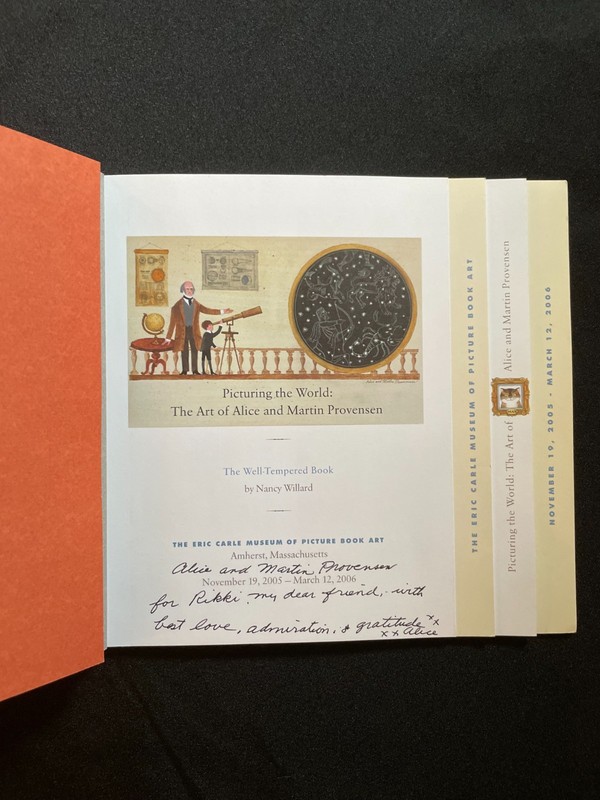 Picturing the World:
The Art of Alice and Martin Provensen
The Well-Tempered Book
by Nancy Willard
THE ERIC CARLE MUSEUM OF PICTURE BOOK ART
Amherst, Massachusetts
Alice and Martin Provensen
November 19, 2005 – March 12, 2006
for Rikki my dear friend, with
best love, admiration, & gratitude x x
x x Alice
THE ERIC CARLE MUSEUM OF PICTURE BOOK ART
Picturing the World: The Art of Alice and Martin Provensen
NOVEMBER 19, 2005 - MARCH 12, 2006